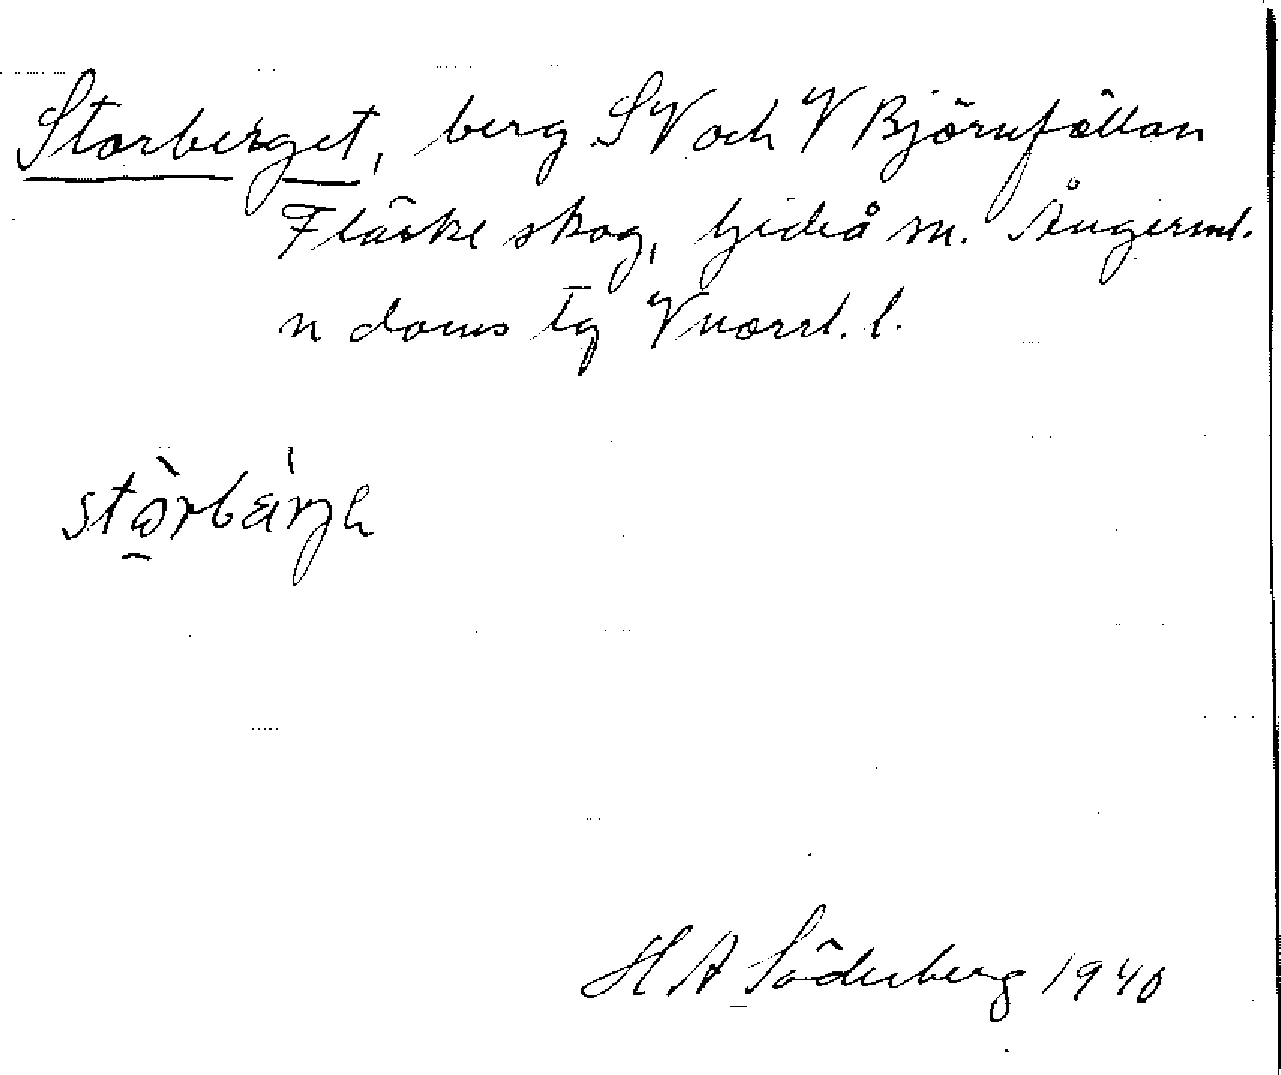 Storberget, berg SV och V Björnfällan
Fläske skog, Gideå sn. Ångerml.
n doms tg Vnorrl. l.
stòrbárge
H A Söderberg 1940